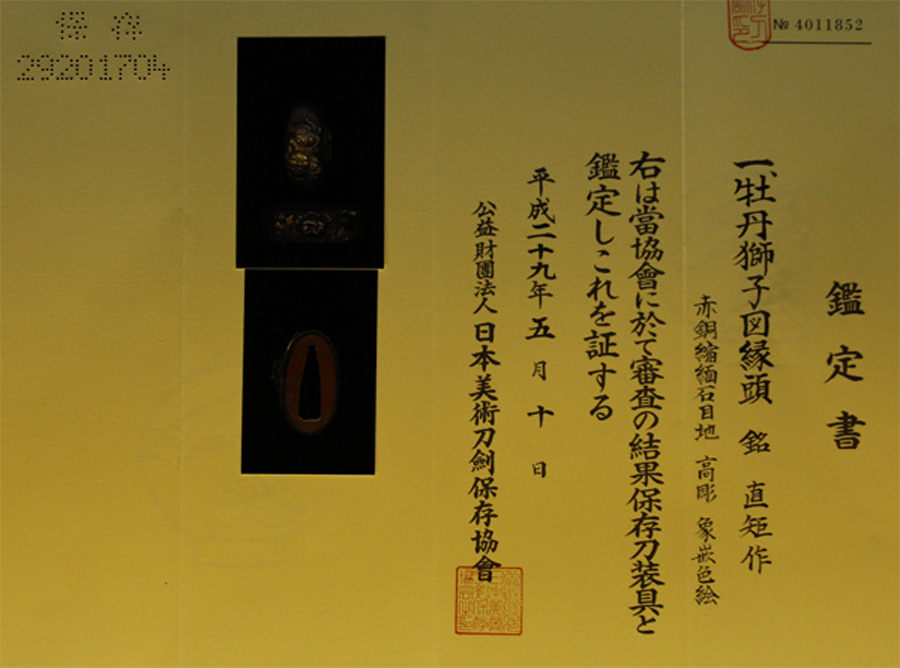 鑑定書
№ 4011852
一、牡丹獅子図縁頭 銘 直矩作
赤銅縮緬石目地 高彫 象嵌色絵
右は當協會に於て審査の結果保存刀装具と
鑑定しこれを証する
平成二十九年五月十日
公益財團法人日本美術刀劍保存協會
保存
29201704